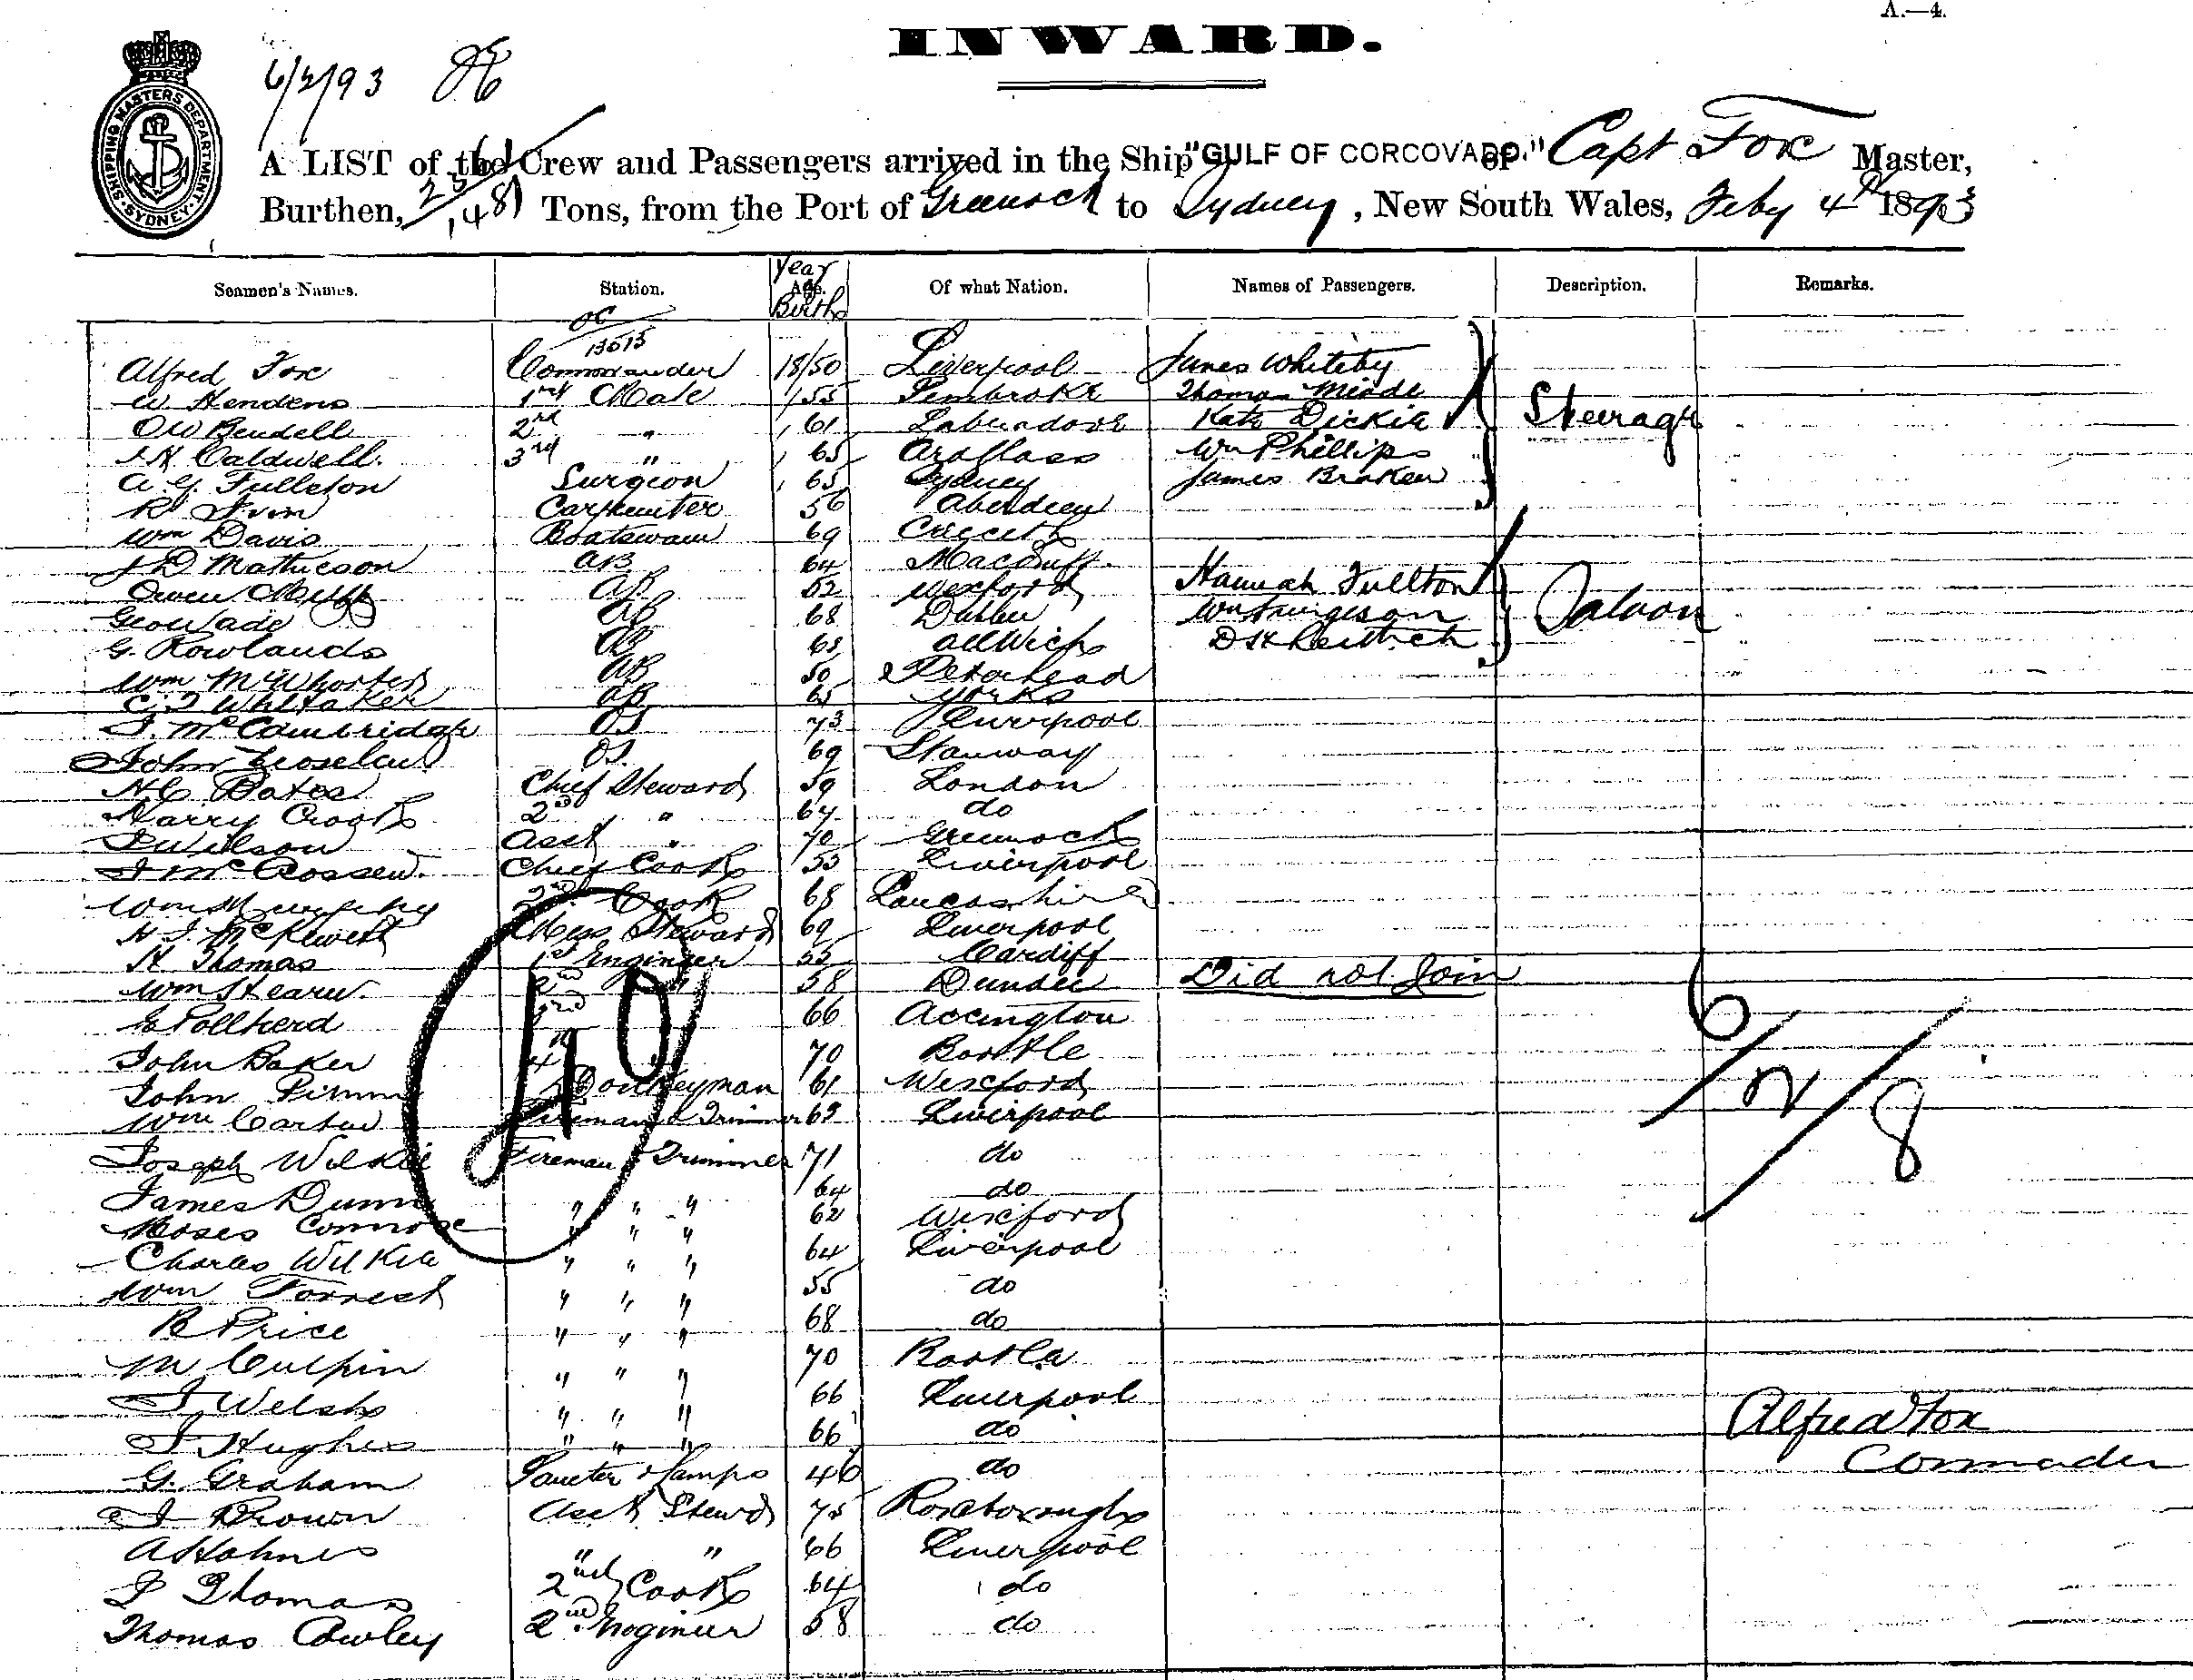 A.—4.
INWARD.
6/2/93
SHIPPING MASTERS DEPARTMENT SYDNEY
A LIST of the Crew and Passengers arrived in the Ship "GULF OF CORCOVADO." of Capt Fox Master,
Burthen, Tons, from the Port of Greenock to Sydney, New South Wales, Feby 4th 1893
Seamen's Names. Station. Year Age. Birth Of what Nation. Names of Passengers. Description. Remarks.
Alfred Fox Commander 18/50 Liverpool James Whiteby
W. Hendens 1st Mate 55 Pembroke Thomas Meade
OW Bendell 2nd " 61 Kate Dickie Steerage
Caldwell. 3rd " 65 Wm Phillips
A. G. Fulleton Surgeon 65 Sydney James Braken
R Carpenter 56 Aberdeen
Wm Davis Boatswain 69
J D Mathieson AB 64 Macduff
Owen AB 62 Wexford Hannah Fullton
Geo Wade AB 68 Dublin Wm Saloon
G. Rowlands AB 63
Wm McWhorter AB 50 Peterhead
C. J Whitaker AB 65 Yorks
J. McCambridge OS 73 Liverpool
John OS. 69 Stanway
H C Bates Chief Steward 59 London
Harry Crooks 2nd " 64 do
J Wilson Asst " 70 Greenock
J McCrossen. Chief Cook 55 Liverpool
Wm Murphy 2nd Cook 68 Lancashire
H J Mess Steward 69 Liverpool
H Thomas 1st Engineer 55 Cardiff
Wm Hearn. 2nd " 58 Dundee Did not Join
E Pollherd 3rd 66 Accington
John Baker 4 70 Bootle
John Donkeyman 61 Wexford
Wm Carter Fireman & Trimmer 62 Liverpool
Joseph Wilkie Fireman & Trimmer 71 do
James Dunn " " " 64 do
Moses Connors " " " 62 Wexford
Charles Wilkie " " " 64 Liverpool
Wm Forrest " " " 55 do
R Price " " " 68 do
M Culpin " " " 70 Bootle
J Welsh " " " 66 Liverpool
J Hughes " " " 66 do
Alfred Fox
Commader
G. Graham Lamps 46 do
J Brown Asst Stewd 75 Roxborough
A Holmes " " 66 Liverpool
J Thomas 2nd Cook 64 do
Thomas Cowley 2nd Engineer 58 do